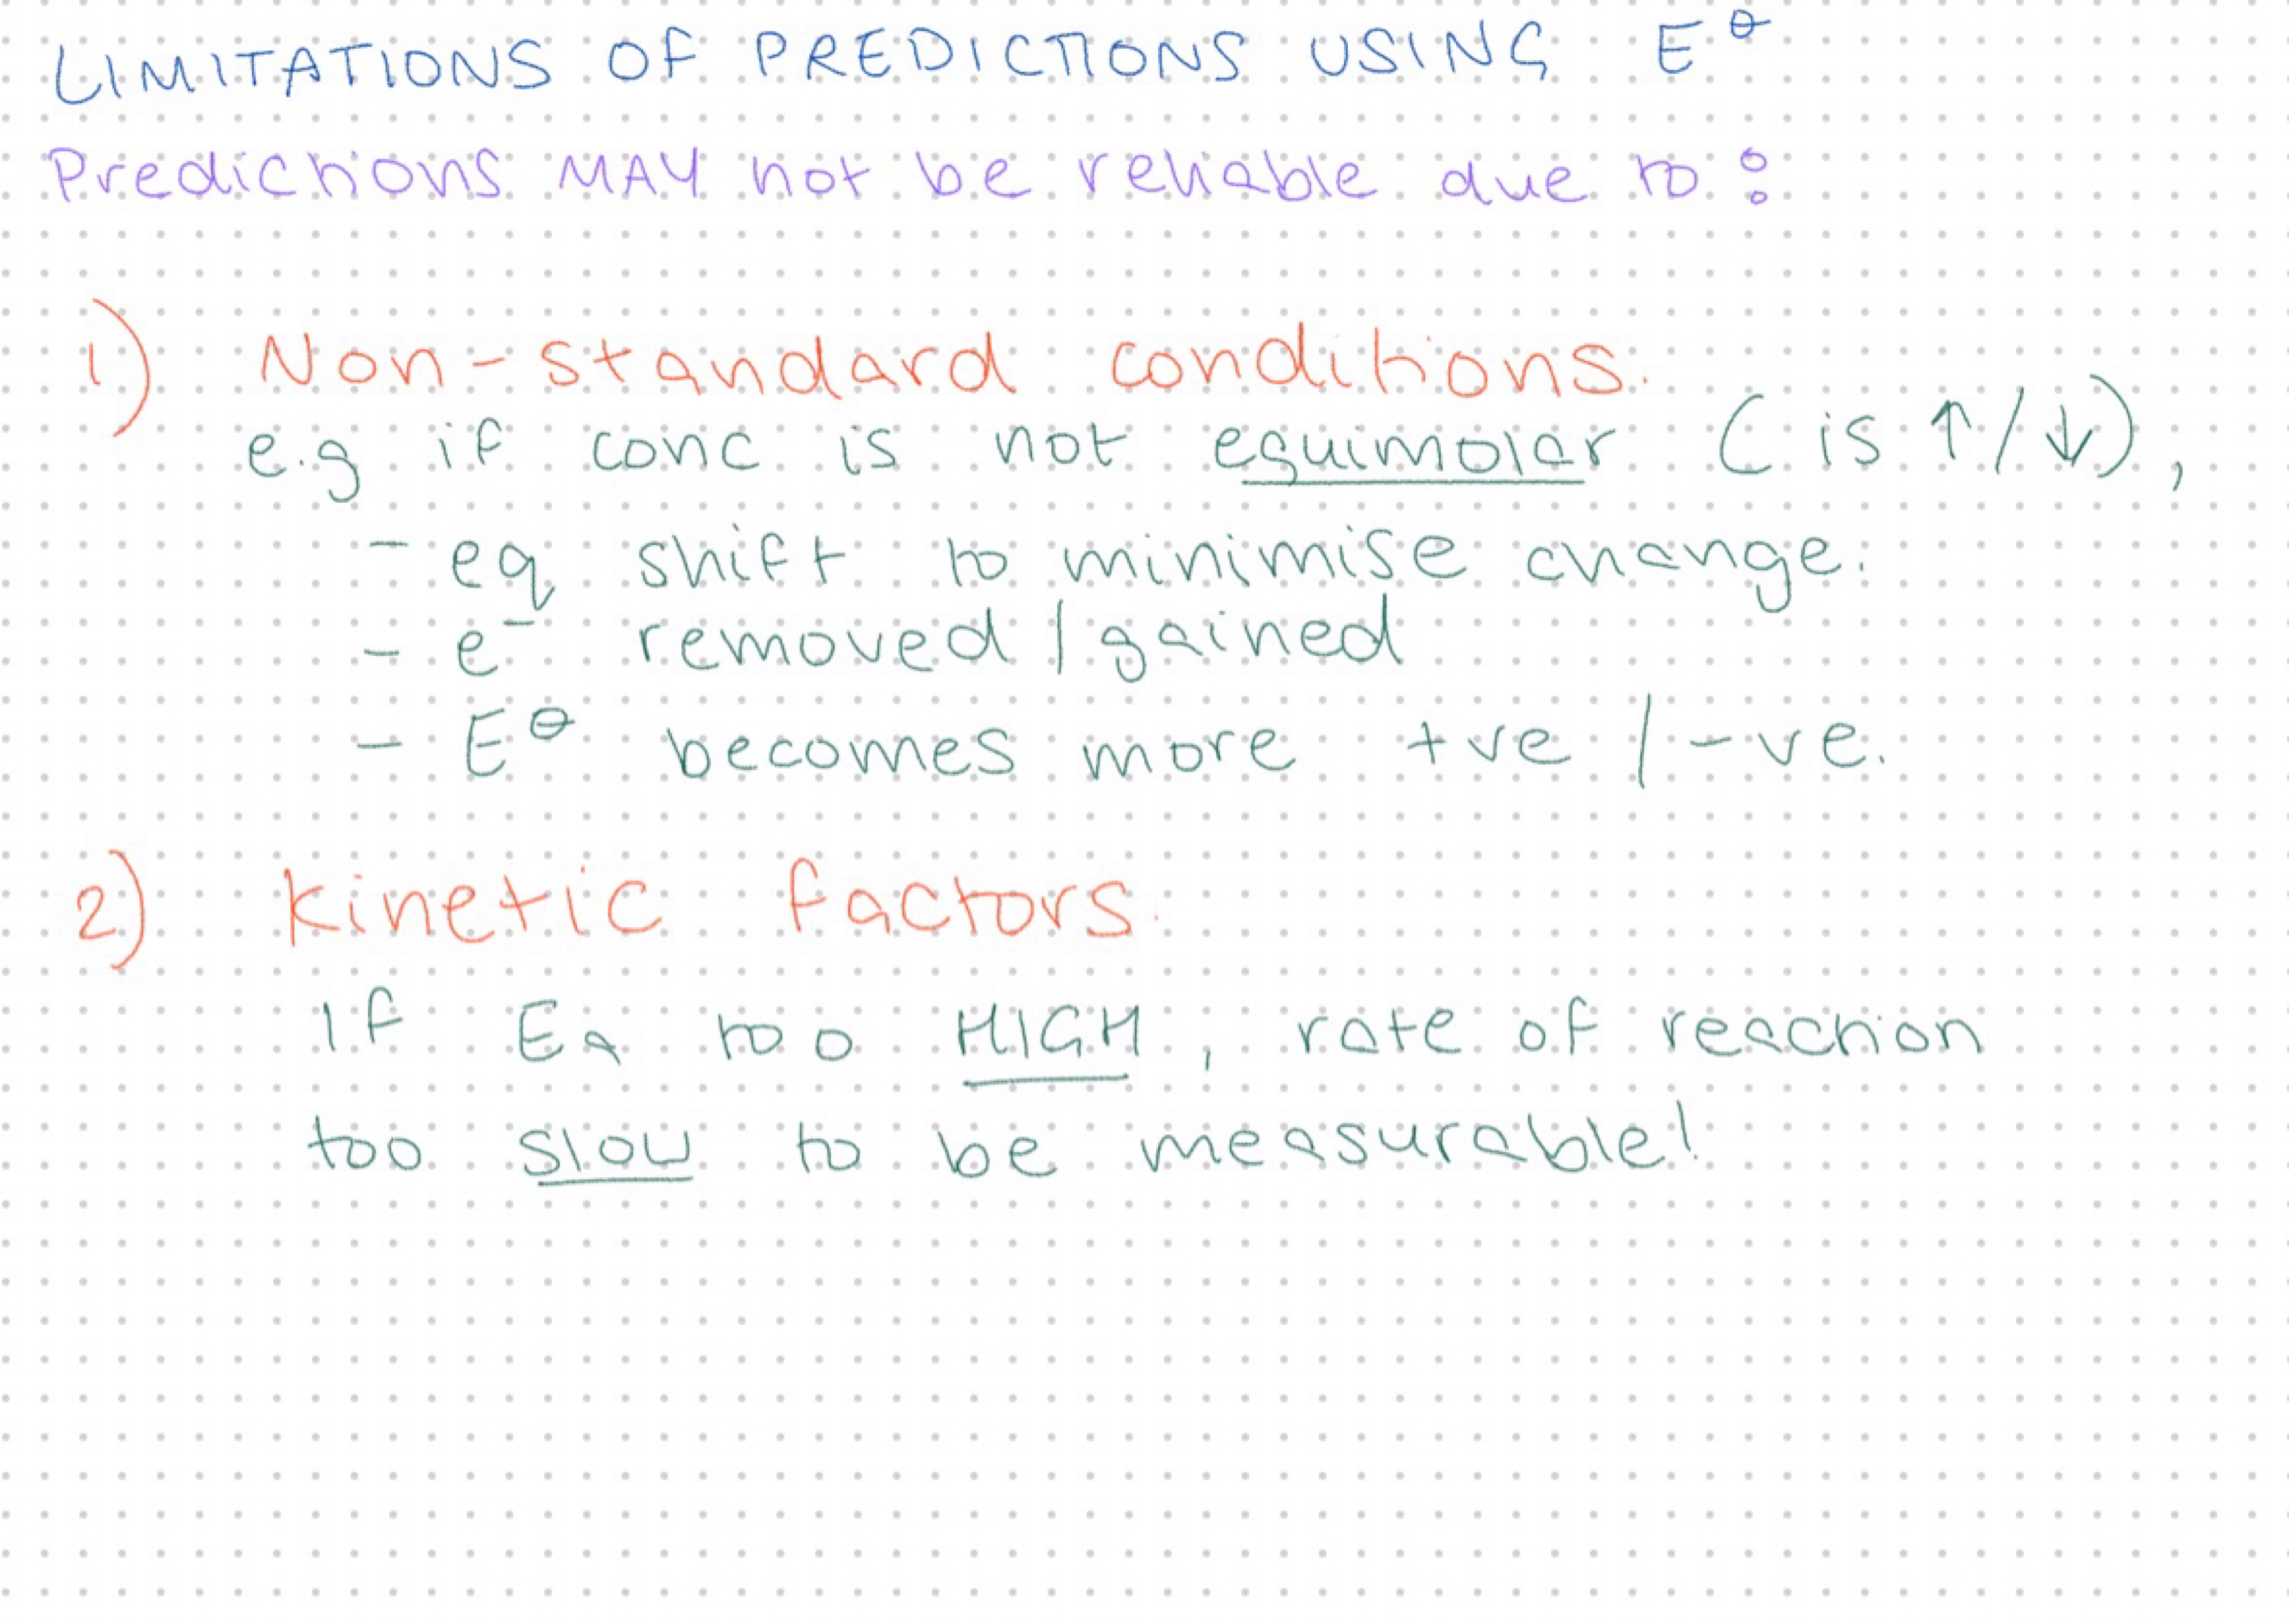 LIMITATIONS OF PREDICTIONS USING E⦵
Predictions MAY not be reliable due to:
1) Non-standard conditions.
e.g if conc is not equimolar (is ↑/↓),
- eq shift to minimise change.
- e⁻ removed/gained
- E⦵ becomes more +ve/-ve.
2) Kinetic factors.
If Ea too HIGH, rate of reaction
too slow to be measurable!